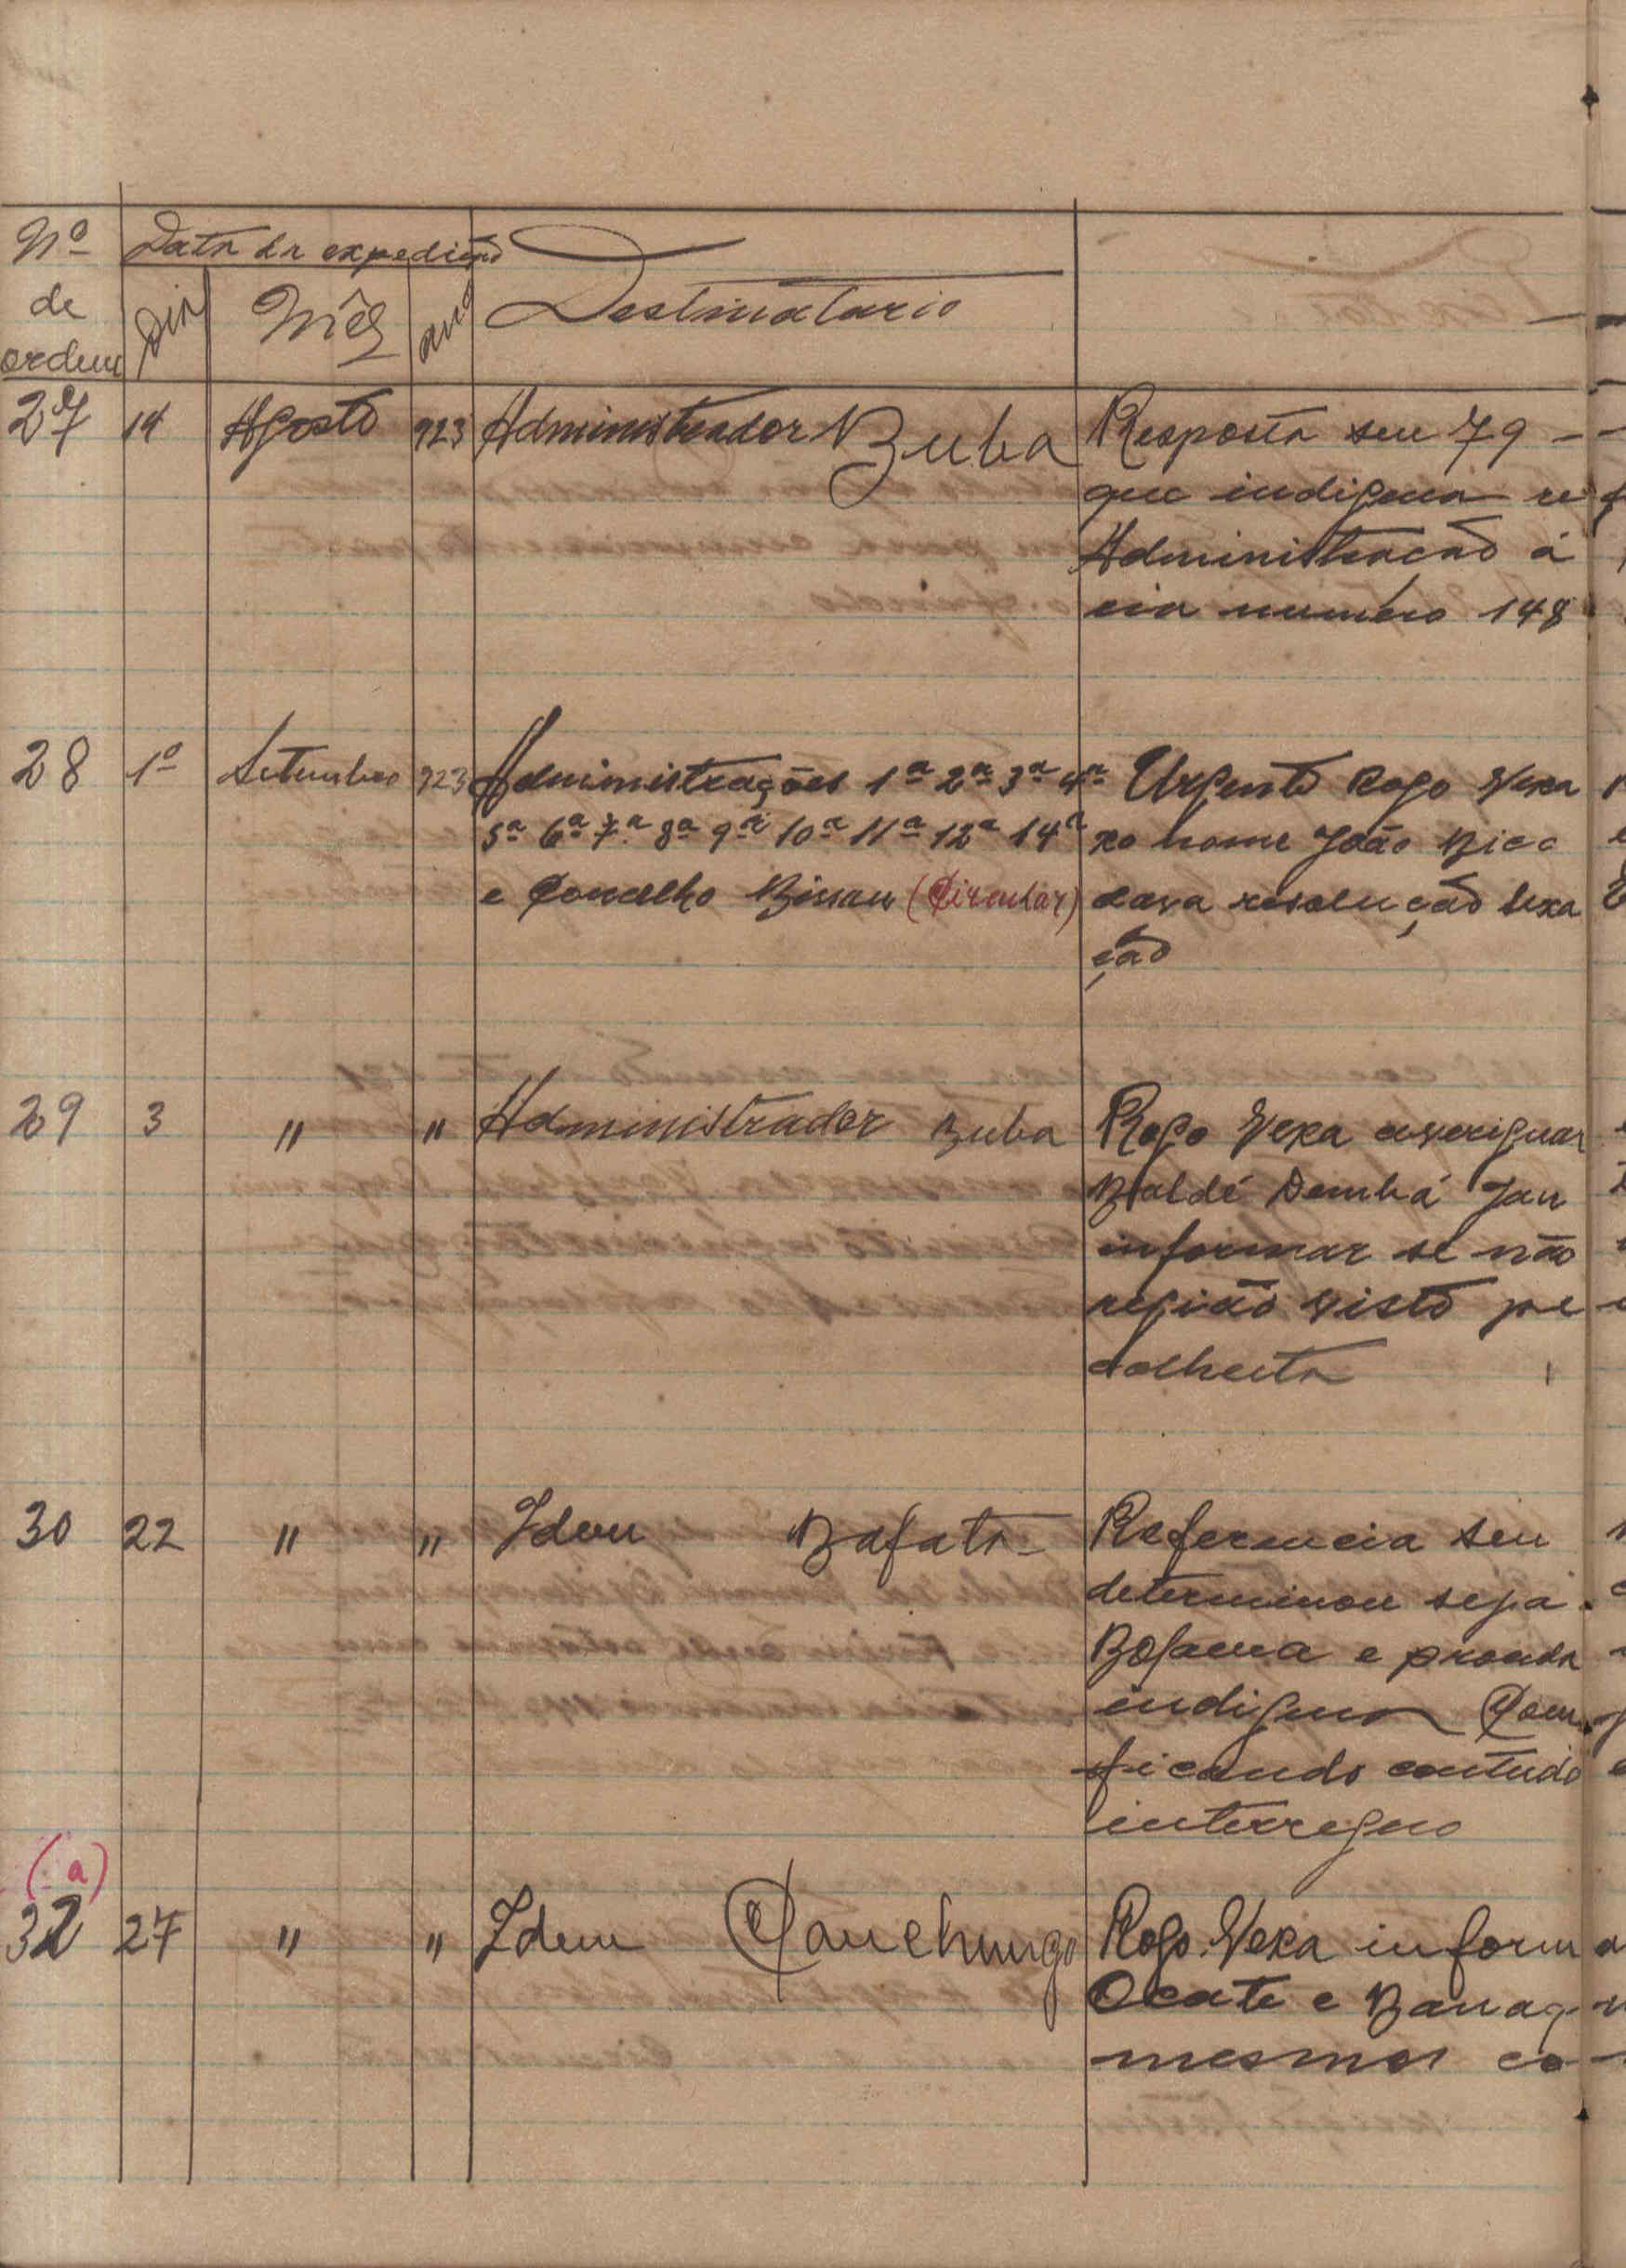 Nº de ordem
Data da expedição
Dia Mês ano
Destinatario
27 14 Agosto 923 Administrador Buba Resposta seu 79 -
que indigena re
Administracão á
cia numéro 148
28 1º Setembro 923 Administrações 1ª 2ª 3ª 4ª Urgente Rogo Vexa
5ª 6ª 7ª 8ª 9ª 10ª 11ª 12ª 14ª xo nome João
e Concelho Bissau (Circular) resolução
ção
29 3 " " Administrador Buba Rogo Vexa averiguar
Baldé Dembá Jau
informar se não
região visto pe
colheita
30 22 " " Idem Bafatá Referencia seu
determinou seja
Bolama e
indigena
ficando contudo
interregno
(a)
32 27 " " Idem Canchungo Rogo Vexa inform
Ocate e
mesmos co